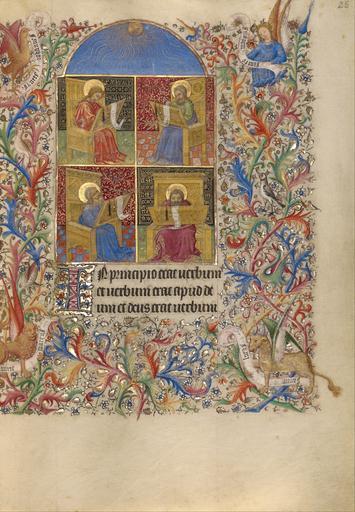 26
In principio erat uerbum
et uerbum erat apud de
um et deus erat uerbum